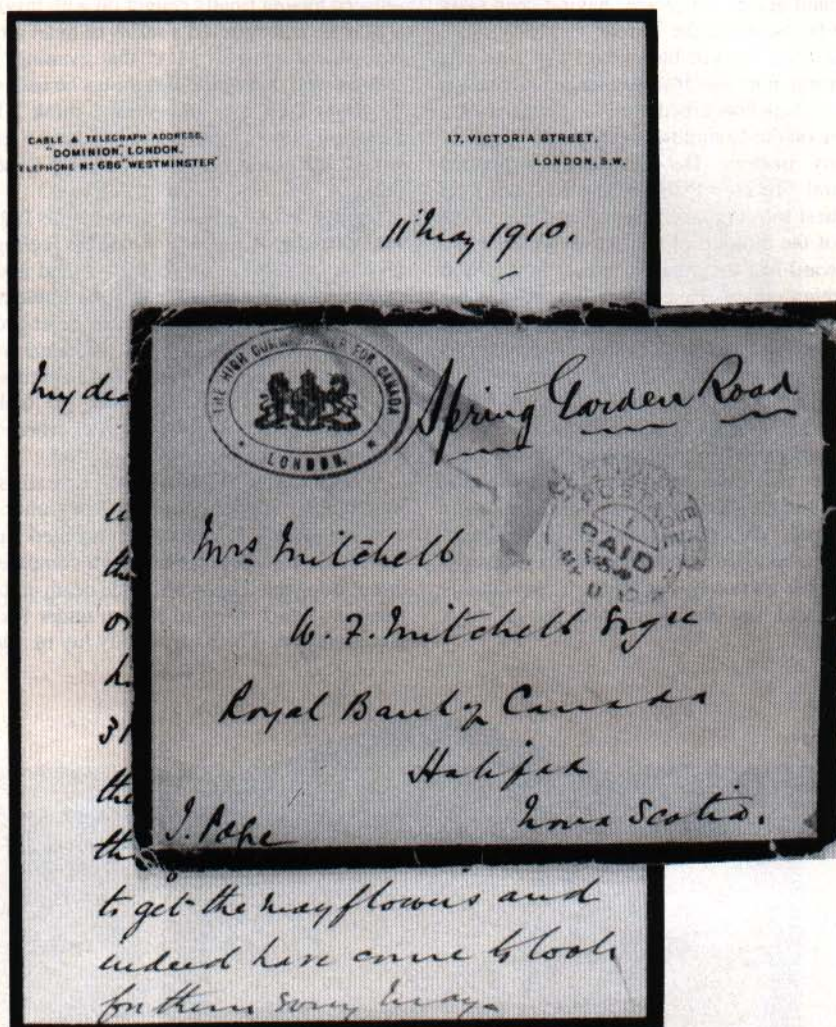 CABLE & TELEGRAPH ADDRESS,
"DOMINION", LONDON.
TELEPHONE Nº 686 "WESTMINSTER"
17, VICTORIA STREET,
LONDON, S.W.
11 May 1910.
My dea
THE HIGH COMMISSIONER FOR CANADA
LONDON.
Spring Garden Road
PAID
Mrs Mitchell
W. F. Mitchell Esqre
Royal Bank of Canada
Halifax
Nova Scotia.
J. Pope
the
or
h
31
the
th
to get the mayflowers and
indeed have come to look
for them every May.